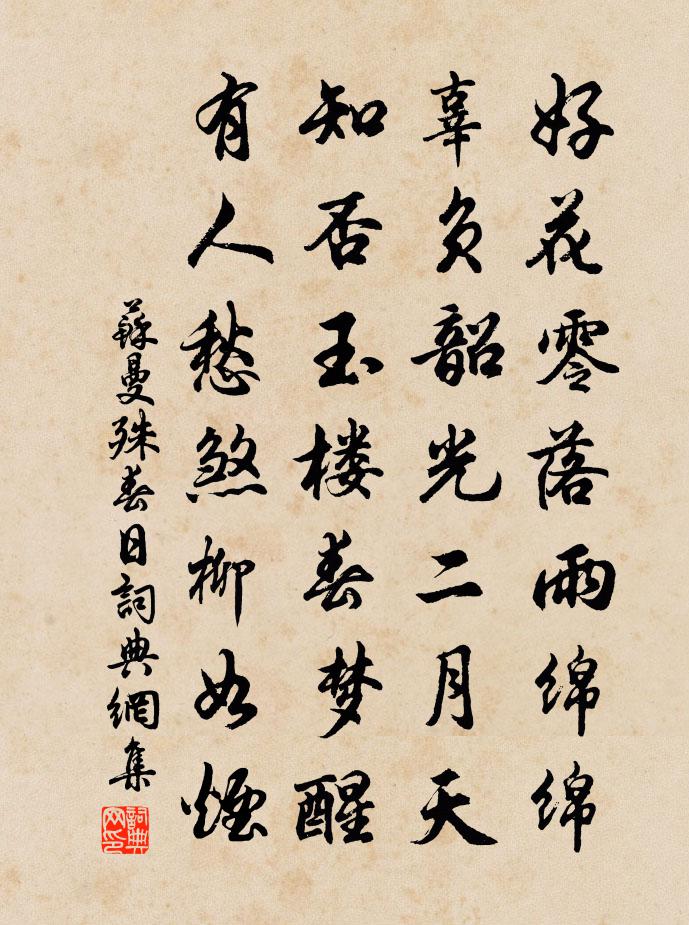 好花零落雨绵绵
辜负韶光二月天
知否玉楼春梦醒
有人愁煞柳如烟
蘇曼殊春日詞典網集
詞典网印